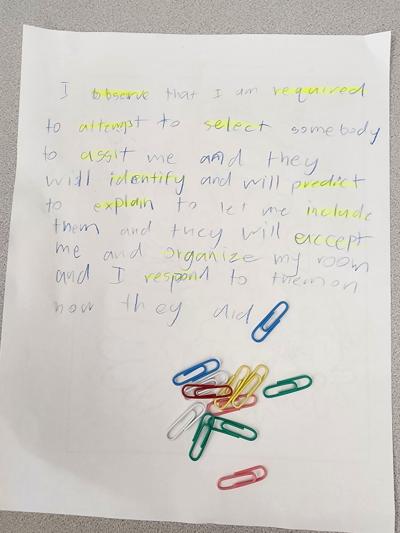 I observe that I am required
to attempt to select somebody
to assit me and they
will identify and will predict
to explain to let me include
them and they will eccept
me and organize my room
and I respond to them on
how they did